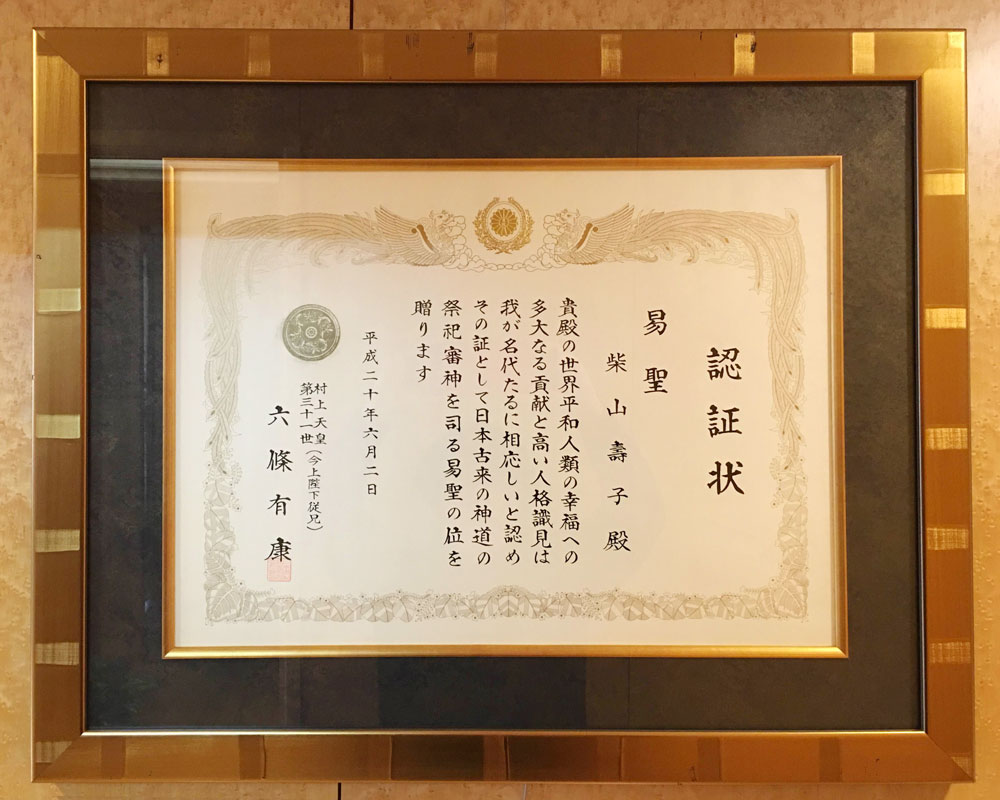 認証状
易聖
柴山壽子殿
貴殿の世界平和人類の幸福への
多大なる貢献と高い人格識見は
我が名代たるに相応しいと認め
その証として日本古来の神道の
祭祀審神を司る易聖の位を
贈ります
平成二十年六月二日
村上天皇
第三十一世(今上陛下従兄)
六條有康